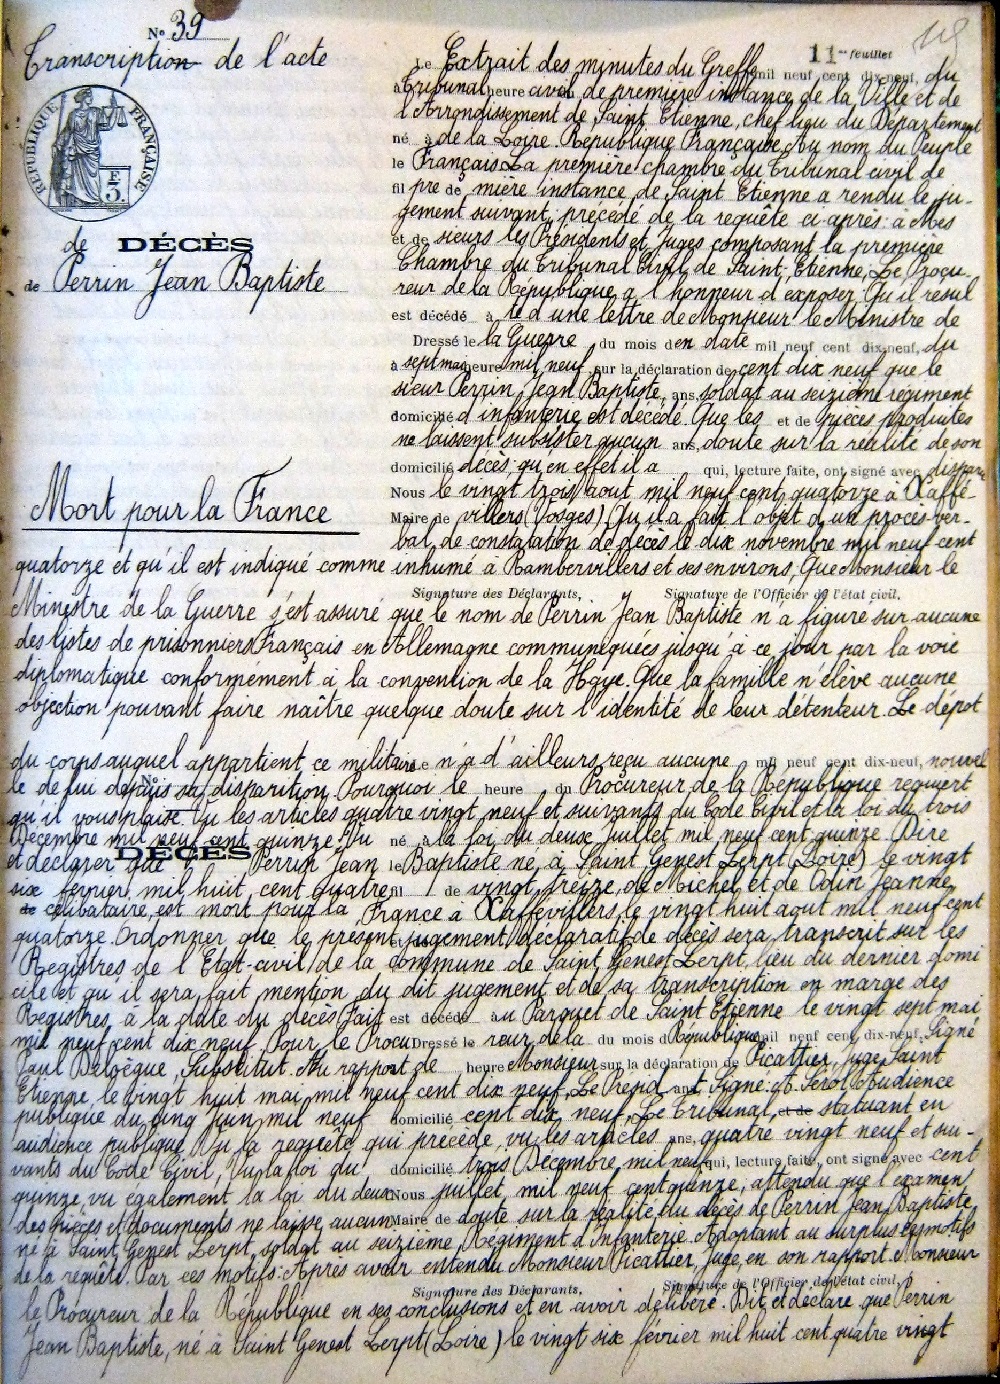 N° 39
Transcription de l'acte
RÉPUBLIQUE FRANÇAISE
F
3.
de DÉCÈS
de Perrin Jean Baptiste
Mort pour la France
11me feuillet
Le Extrait des minutes du Greffe mil neuf cent dix-neuf, du
à Tribunal heure civil de première instance de la Ville et de
l'Arrondissement de Saint Etienne, chef lieu du Département
né à de la Loire. République Française. Au nom du Peuple
le Français. La première chambre du Tribunal civil de
fil pre de mière instance de Saint Etienne a rendu le ju-
gement suivant, précédé de la requête ci après: à Mes
et de sieurs les Présidents et Juges composant la première
Chambre du Tribunal Civil de Saint-Etienne, Le Procu
reur de la République a l'honneur d'exposer: Qu'il résul
est décédé à te d'une lettre de Monsieur le Ministre de
Dressé le la Guerre du mois d en date mil neuf cent dix-neuf, du
à sept mai heure mil neuf sur la déclaration de cent dix neuf que le
sieur Perrin Jean Baptiste, ans, soldat au seizième régiment
domicilié d'infanterie est décédé. Que les et de pièces produites
ne laissent subsister aucun ans, doute sur la réalité de son
domicilié décès; qu'en effet il a qui, lecture faite, ont signé avec disparu
Nous le vingt trois aout mil neuf cent quatorze à Xaffé-
Maire de villers (Vosges) Qu'il a fait l'objet d'un procès-ver-
bal de constatation de décès le dix novembre mil neuf cent
quatorze et qu'il est indiqué comme inhumé à Rambervillers et ses environs, Que Monsieur le
Signature des Déclarants, Signature de l'Officier de l'état civil,
Ministre de la Guerre s'est assuré que le nom de Perrin Jean Baptiste n'a figuré sur aucune
des listes de prisonniers Français en Allemagne communiquées jusqu'à ce jour par la voie
diplomatique conformément à la convention de la Haye. Que la famille n'élève aucune
objection pouvant faire naître quelque doute sur l'identité de leur détenteur. Le dépôt
du corps auquel appartient ce militaire n'a d'ailleurs reçu aucune mil neuf cent dix-neuf, nouvel
N°
le de lui depuis sa disparition. Pourquoi le heure du Procureur de la République requiert
qu'il vous plaise. Vu les articles quatre vingt neuf et suivants du Code Civil et la loi du trois
Décembre mil neuf cent quinze. Vu né à la loi du deux Juillet mil neuf cent quinze. Dire
DÉCÈS
et déclarer que Perrin Jean le Baptiste né à Saint Genest Lerpt (Loire) le vingt
six février mil huit cent quatre fil de vingt treize, de Michel et de Odin Jeanne,
de célibataire, est mort pour la France à Xaffévillers le vingt huit aout mil neuf cent
quatorze. Ordonner que le présent jugement déclaratif de décès sera transcrit sur les
Registres de l'Etat-civil de la Commune de Saint Genest Lerpt, lieu du dernier domi
cile et qu'il sera fait mention du dit jugement et de sa transcription en marge des
Registres, à la date du décès. Fait est décédé au Parquet de Saint Etienne le vingt sept mai
mil neuf cent dix neuf. Pour le Procu Dressé le reur de la du mois d République mil neuf cent dix-neuf, Signé
Paul Delocque, Substitut. Au rapport de heure Monsieur sur la déclaration de Picattier, Juge, Saint
Etienne le vingt huit mai mil neuf cent dix neuf, Le Présid ant Signé: Audience
publique du cinq Juin mil neuf domicilié cent dix neuf, Le Tribunal, et de statuant en
audience publique, Vu la requête qui précède, vu les articles ans, quatre vingt neuf et sui-
vants du Code Civil, Vu la loi du domicilié trois Décembre mil neuf qui, lecture faite, ont signé avec cent
quinze, vu également la loi du deux Nous juillet mil neuf cent quinze, attendu que l'examen
des pièces et documents ne laisse aucun Maire de doute sur la réalité du décès de Perrin Jean Baptiste
né à Saint Genest Lerpt, soldat au seizième Régiment d'Infanterie. Adoptant au surplus les motifs
de la requête. Par ces motifs: Après avoir entendu Monsieur Picattier, Juge, en son rapport. Monsieur
Signature des Déclarants, Signature de l'Officier de l'état civil,
le Procureur de la République en ses conclusions et en avoir délibéré. Dit et déclare que Perrin
Jean Baptiste, né à Saint Genest Lerpt (Loire) le vingt six février mil huit cent quatre vingt